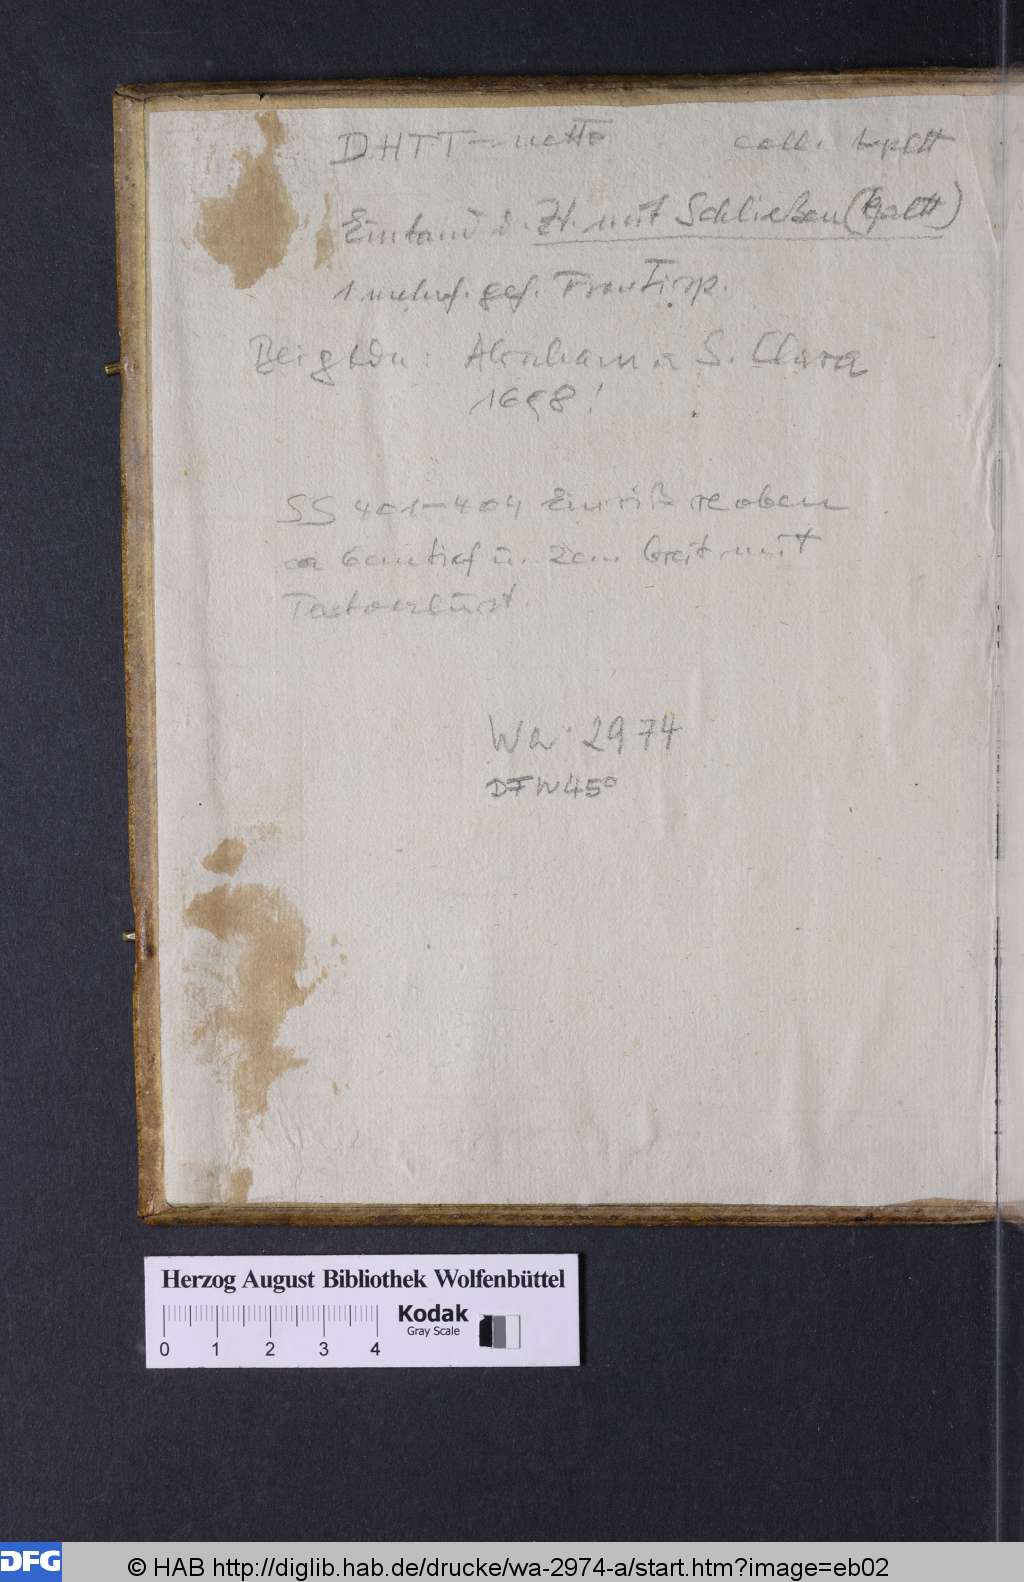 DHTT – netto coll. kpltt
Einband d. Zt. mit Schließen (kpltt)
1 mehrf. gef. Frontisp.
Beigebdn: Abraham a S. Clara
1698!
SS 401–404 Einriß re oben
ca 6cm tief u. 2cm breit mit
Textverlust.
Wa 2974
DFW 450
Herzog August Bibliothek Wolfenbüttel
Kodak
Gray Scale
0 1 2 3 4
DFG
© HAB http://diglib.hab.de/drucke/wa-2974-a/start.htm?image=eb02